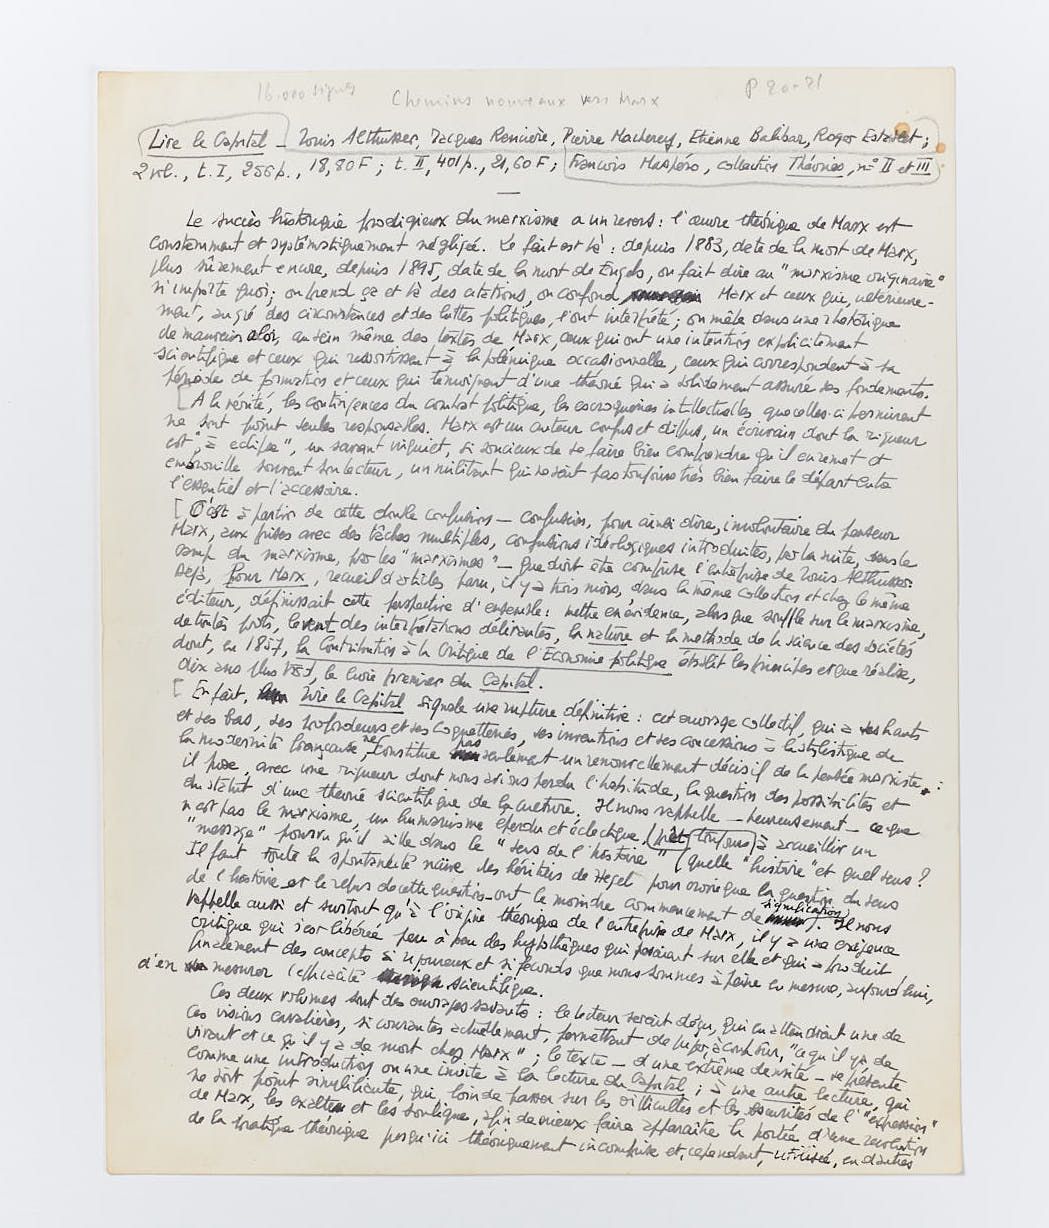 16.000 signes
Chemins nouveaux vers Marx
P 20-21
Lire le Capital _ Louis Althusser, Jacques Rancière, Pierre Macherey, Etienne Balibar, Roger Establet ;
2 vol., t. I, 256 p., 18,80 F ; t. II, 401 p., 21,60 F ; François Maspéro, collection Théories, n° II et III
Le succès historique prodigieux du marxisme a un revers : l'œuvre théorique de Marx est
constamment et systématiquement négligée. Le fait est là : depuis 1883, date de la mort de Marx,
plus sûrement encore, depuis 1895, date de la mort de Engels, on fait dire au "marxisme originaire"
n'importe quoi ; on prend ça et là des citations, on confond Marx et ceux qui, ultérieure-
ment, au gré des circonstances et des luttes politiques, l'ont interprété ; on mêle dans une rhétorique
de mauvais aloi, au sein même des textes de Marx, ceux qui ont une intention explicitement
scientifique et ceux qui ressortissent à la polémique occasionnelle, ceux qui correspondent à sa
période de formation et ceux qui témoignent d'une théorie qui a solidement assuré ses fondements.
[ A la vérité, les contingences du combat politique, les escroqueries intellectuelles que celles-ci permirent
ne sont point seules responsables. Marx est un auteur confus et diffus, un écrivain dont la rigueur
est "à éclipse", un savant inquiet, si soucieux de se faire bien comprendre qu'il en remet et
embrouille souvent son lecteur, un militant qui ne sait pas toujours très bien faire le départ entre
l'essentiel et l'accessoire.
[ C'est à partir de cette double confusion — confusion, pour ainsi dire, involontaire du penseur
Marx, aux prises avec des tâches multiples, confusions idéologiques introduites, par la suite, dans le
camp du marxisme, par les "marxismes" — que doit être comprise l'entreprise de Louis Althusser.
Déjà, Pour Marx, recueil d'articles paru, il y a trois mois, dans la même collection et chez le même
éditeur, définissait cette perspective d'ensemble : mettre en évidence, alors que souffle sur le marxisme,
de toutes parts, le vent des interprétations délirantes, la nature et la méthode de la science des sociétés
dont, en 1857, la Contribution à la Critique de l'Economie politique établit les principes et que réalise,
dix ans plus tard, le livre premier du Capital.
[ En fait, Lire le Capital signale une rupture définitive : cet ouvrage collectif, qui a ses hauts
et ses bas, ses profondeurs et ses coquetteries, ses inventions et ses concessions à la stylistique de
la modernité française, ne constitue pas seulement un renouvellement décisif de la pensée marxiste :
il pose, avec une rigueur dont nous avions perdu l'habitude, la question des possibilités et
du statut d'une théorie scientifique de la culture. Il nous rappelle — heureusement — ce que
n'est pas le marxisme, un humanisme éperdu et éclectique, prêt toujours à accueillir un
"message" pourvu qu'il aille dans le "sens de l'histoire" (quelle "histoire" et quel sens ?
Il faut toute la spontanéité naïve des héritiers de Hegel pour croire que la question du sens
de l'histoire _ et le refus de cette question _ ont le moindre commencement de signification). Il nous
rappelle aussi et surtout qu'à l'origine théorique de l'entreprise de Marx, il y a une exigence
critique qui s'est libérée peu à peu des hypothèques qui pesaient sur elle et qui a produit
finalement des concepts si rigoureux et si féconds que nous sommes à peine en mesure, aujourd'hui,
d'en mesurer l'efficacité scientifique.
Ces deux volumes sont des ouvrages savants : le lecteur serait déçu, qui en attendrait une de
ces visions cavalières, si courantes actuellement, permettant de juger, à coup sûr, "ce qu'il y a de
vivant et ce qu'il y a de mort chez Marx" ; le texte — d'une extrême densité — se présente
comme une introduction ou une invite à la lecture du Capital ; à une autre lecture, qui
ne soit point simplifiante, qui, loin de passer sur les difficultés et les obscurités de l'"expression"
de Marx, les exalte et les souligne, afin de mieux faire apparaître la portée d'une révolution
de la pratique théorique jusqu'ici théoriquement incomprise et, cependant, utilisée, en d'autres